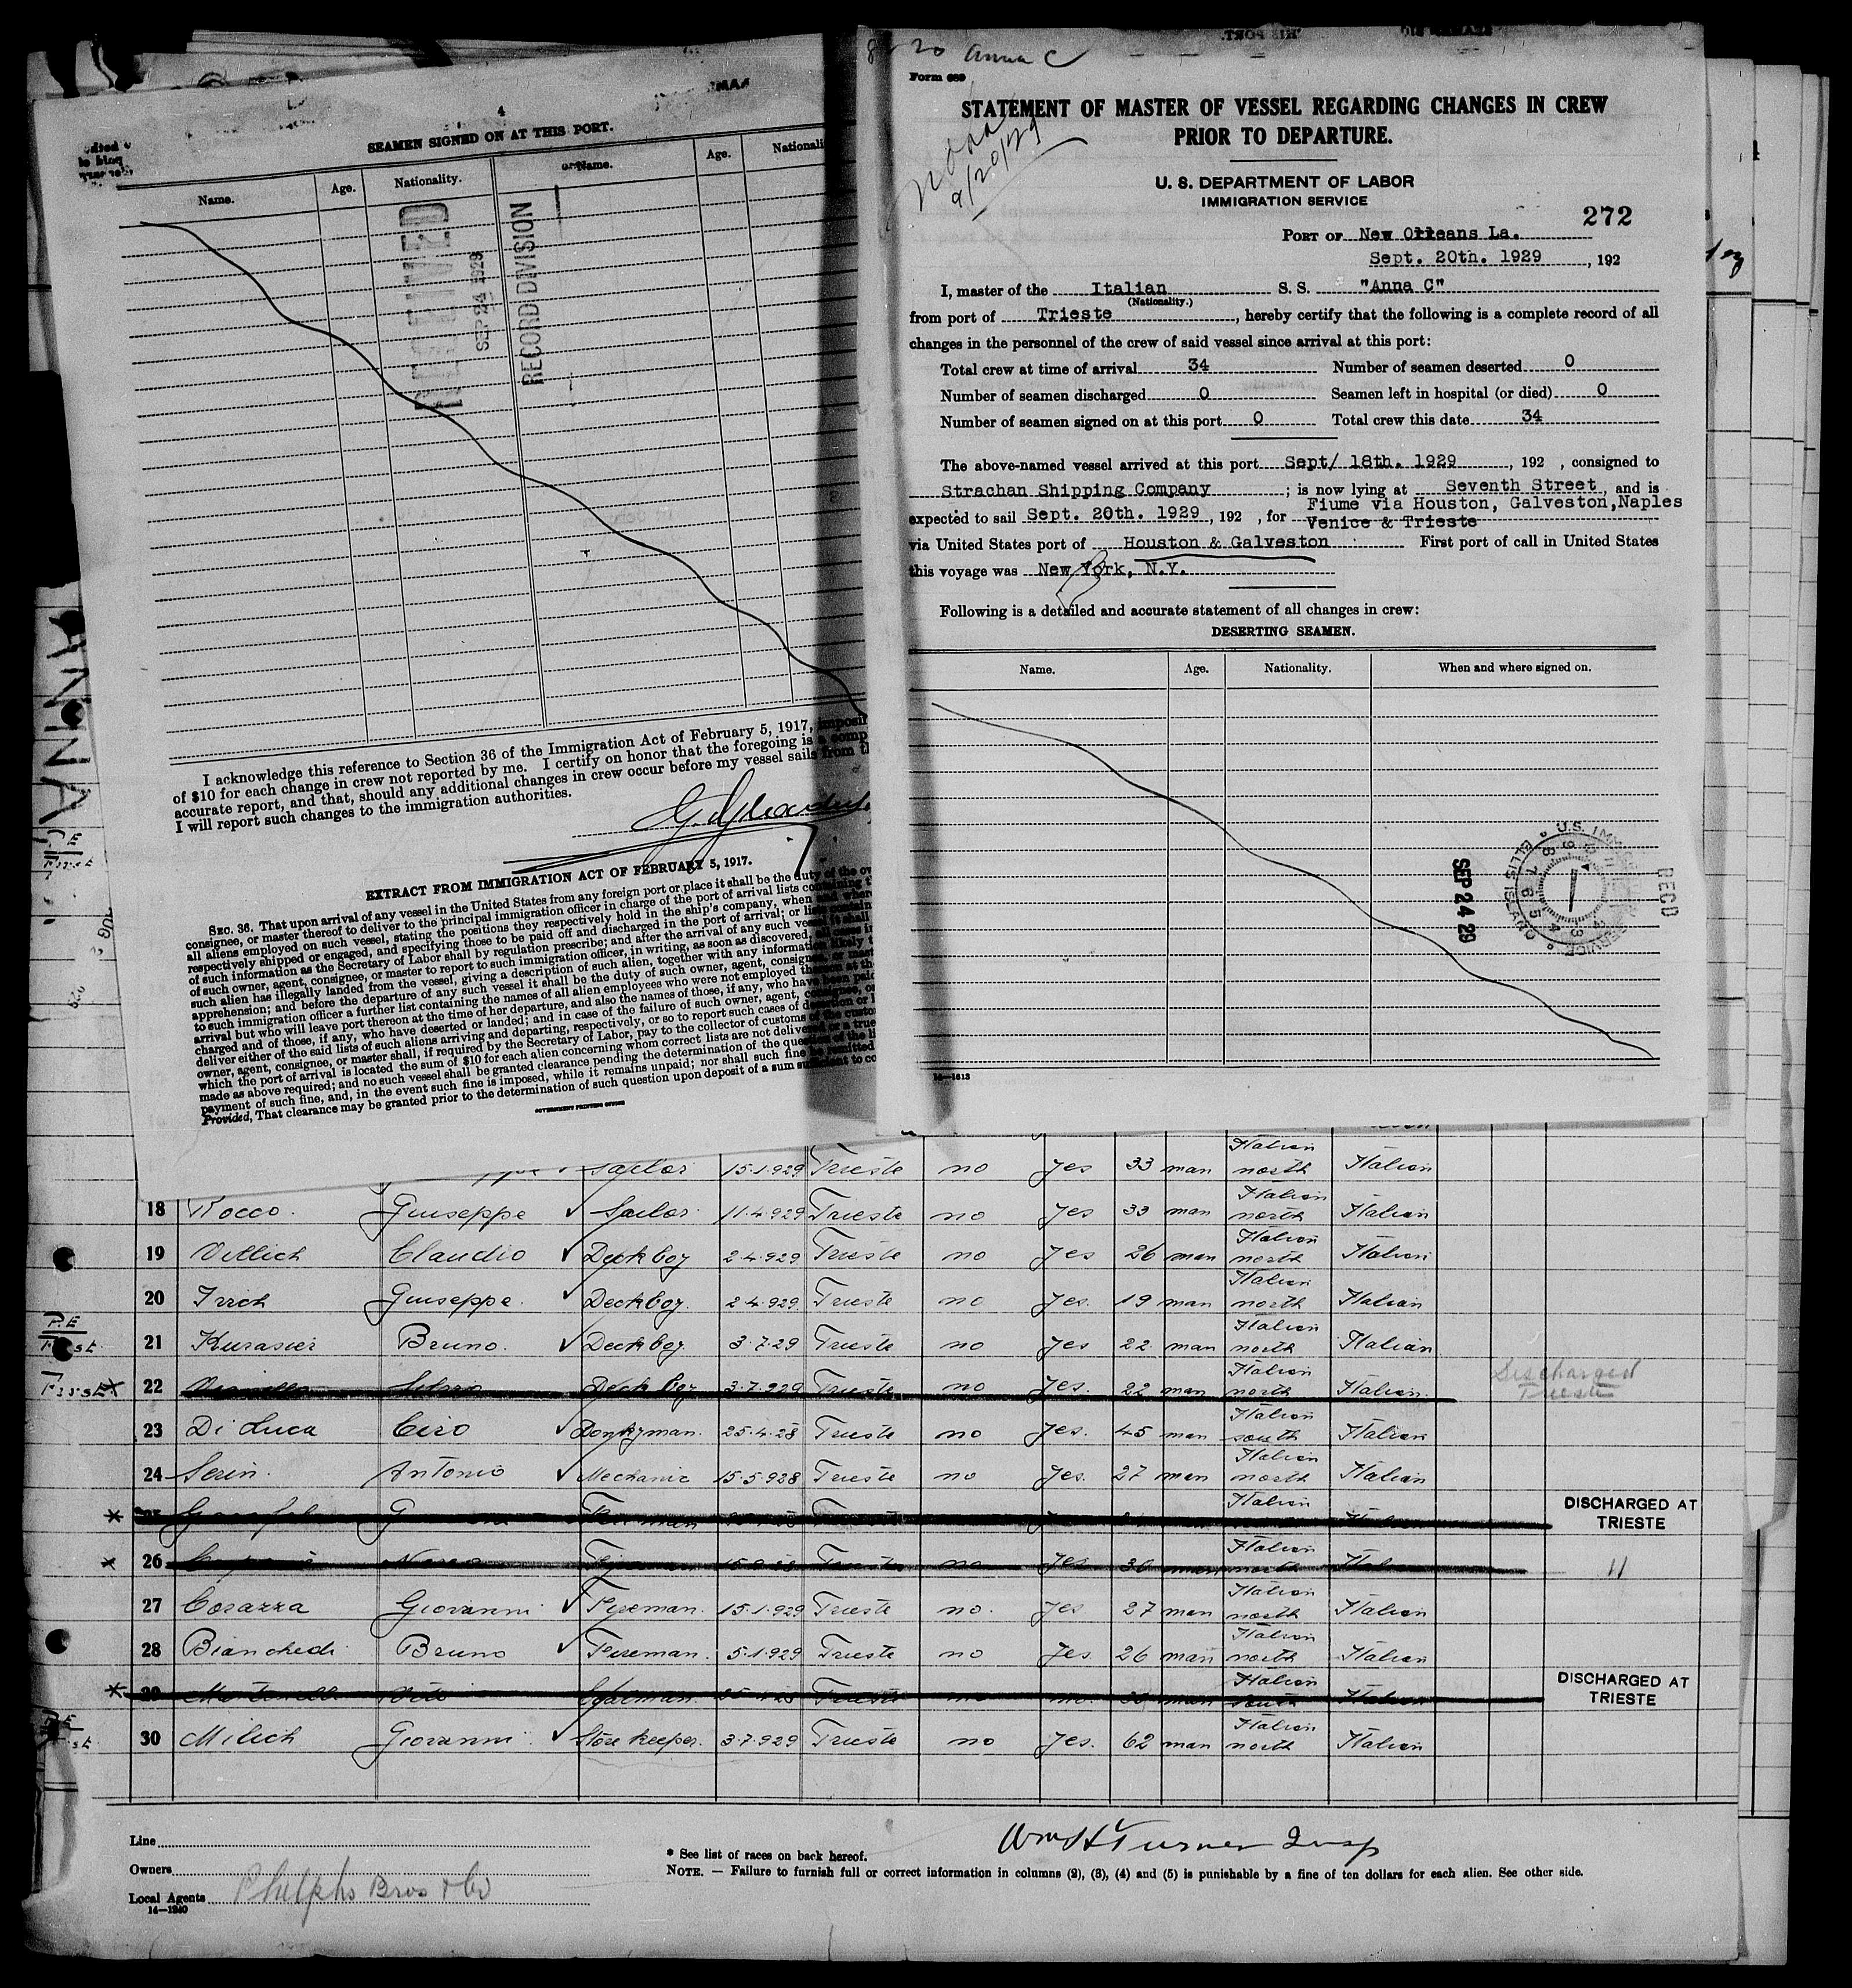 4
SEAMEN SIGNED ON AT THIS PORT.
Name. Age. Nationality. Name. Age.
RECEIVED
SEP 24 1929
RECORD DIVISION
I acknowledge this reference to Section 36 of the Immigration Act of February 5, 1917,
of $10 for each change in crew not reported by me. I certify on honor that the foregoing is a
accurate report, and that, should any additional changes in crew occur before my vessel sails from
I will report such changes to the immigration authorities.
EXTRACT FROM IMMIGRATION ACT OF FEBRUARY 5, 1917.
SEC. 36. That upon arrival of any vessel in the United States from any foreign port or place it shall be the duty of the
consignee, or master thereof to deliver to the principal immigration officer in charge of the port of arrival lists containing
all aliens employed on such vessel, stating the positions they respectively hold in the ship's company, when and where
respectively shipped or engaged, and specifying those to be paid off and discharged in the port of arrival; or lists
of such information as the Secretary of Labor shall by regulation prescribe; and after the arrival of any such vessel it shall
of such owner, agent, consignee, or master to report to such immigration officer, in writing, as soon as discovered, all cases
such alien has illegally landed from the vessel, giving a description of such alien, together with any information likely
apprehension; and before the departure of any such vessel it shall be the duty of such owner, agent, consignee, or
to such immigration officer a further list containing the names of all alien employees who were not employed thereon at
arrival but who will leave port thereon at the time of her departure, and also the names of those, if any, who have been
charged and of those, if any, who have deserted or landed; and in case of the failure of such owner, agent, consignee,
deliver either of the said lists of such aliens arriving and departing, respectively, or so to report such cases of desertion or
owner, agent, consignee, or master shall, if required by the Secretary of Labor, pay to the collector of customs of the
which the port of arrival is located the sum of $10 for each alien concerning whom correct lists are not delivered or a true
made as above required; and no such vessel shall be granted clearance pending the determination of the question of the
payment of such fine, and, in the event such fine is imposed, while it remains unpaid; nor shall such fine be remitted
Provided, That clearance may be granted prior to the determination of such question upon deposit of a sum sufficient to
GOVERNMENT PRINTING OFFICE
20 Anna C
Form 689
STATEMENT OF MASTER OF VESSEL REGARDING CHANGES IN CREW
PRIOR TO DEPARTURE.
9/20/29
U. S. DEPARTMENT OF LABOR
IMMIGRATION SERVICE
272
PORT OF New Orleans La.
Sept. 20th. 1929, 192
I, master of the Italian S. S. "Anna C"
(Nationality.)
from port of Trieste, hereby certify that the following is a complete record of all
changes in the personnel of the crew of said vessel since arrival at this port:
Total crew at time of arrival 34 Number of seamen deserted 0
Number of seamen discharged 0 Seamen left in hospital (or died) 0
Number of seamen signed on at this port 0 Total crew this date 34
The above-named vessel arrived at this port Sept/ 18th. 1929, 192 , consigned to
Strachan Shipping Company ; is now lying at Seventh Street, and is
expected to sail Sept. 20th. 1929, 192 , for Fiume via Houston, Galveston,Naples
Venice & Trieste
via United States port of Houston & Galveston First port of call in United States
this voyage was New York, N.Y.
Following is a detailed and accurate statement of all changes in crew:
DESERTING SEAMEN.
Name. Age. Nationality. When and where signed on.
RECD
SEP 24 29
ELLIS ISLAND
14—1613
ANNA
Sailor 15.1.929 Trieste no yes 33 man Italian north Italian
18 Rocco. Giuseppe Sailor 11.4.929 Trieste no yes 33 man Italian north Italian
19 Vittlich Claudio Deck boy 2.4.929 Trieste no yes 26 man Italian north Italian
20 Irrch Giuseppe Deck boy. 2.4.929 Trieste no yes. 19 man Italian north Italian
P.E
First
21 Kurasier Bruno. Deck boy. 3.7.29 Trieste no yes 22 man Italian north Italian
First 22 Deck boy 3.7.929 Trieste no yes. 22 man Italian north Italian. Discharged Trieste
23 Di Luca Ciro Donkyman. 25.4.28 Trieste no yes. 45 man Italian south Italian
24 Serin. Antonio Mechanic 15.5.928 Trieste no yes. 27 man Italian north Italian
Italian DISCHARGED AT TRIESTE
26 Trieste no yes 30 man Italian north Italian "
27 Corazza Giovanni Fireman. 15.1.929 Trieste no. yes 27 man Italian north Italian
28 Bianchedi Bruno Fireman. 5.1.929 Trieste no yes 26 man Italian north Italian
29 Vito Coalman Trieste man Italian south Italian DISCHARGED AT TRIESTE
30 Milich Giovanni Store keeper. 3.7.929 Trieste no yes. 62 man Italian north Italian
Line
Owners
Local Agents Phelphs Bros & Co
14—1240
Wm H Turner Insp
* See list of races on back hereof.
NOTE. — Failure to furnish full or correct information in columns (2), (3), (4) and (5) is punishable by a fine of ten dollars for each alien. See other side.